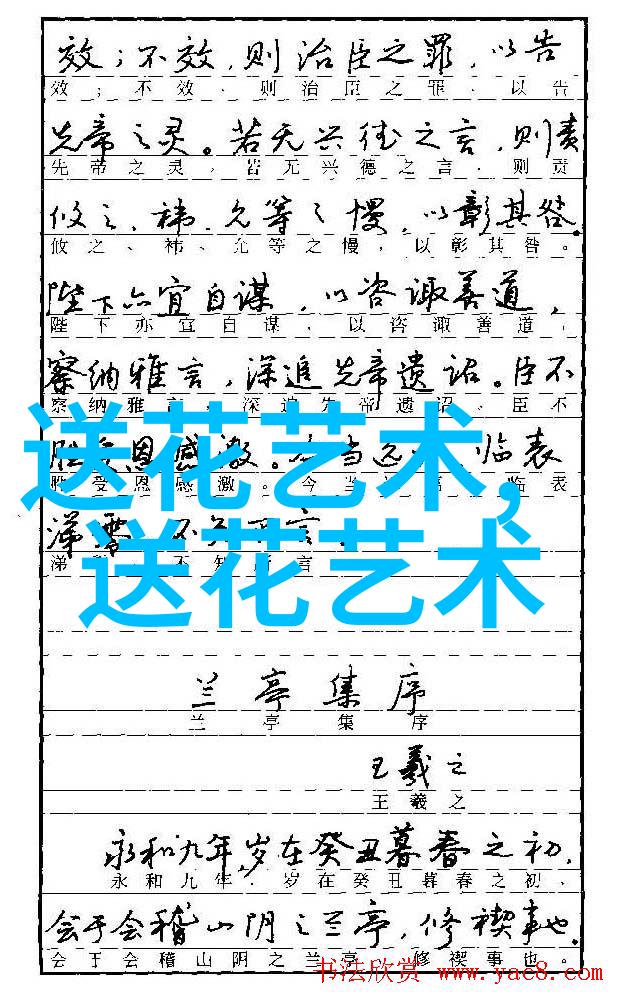 效；不效，则治臣之罪，以告
效；不效、则治臣之罪、以告
先帝之灵。若无兴德之言，则责
先帝之灵，若无兴德之言，则责
攸之、祎、允等之慢，以彰其咎。
攸之、祎、允等之慢，以彰其咎。
陛下亦宜自谋，以咨诹善道，
陛下亦宜自谋，以咨诹善道，
察纳雅言，深追先帝遗诏。臣不
察纳雅言，深追先帝遗诏。臣不
恩感激。当远 临表
受恩感激。今当 临表
送花艺术，
涕 不 言
涕 不知 言
送花艺术
兰亭集序
兰亭集序
王羲之
王羲之
永和九年，岁在癸丑暮春之初，
永和九年，岁在癸丑暮春之初、
会于会稽山阴之兰亭，修禊事也。
会于会稽山阴之兰亭 修禊事也。
书法欣赏 www.yac8.com